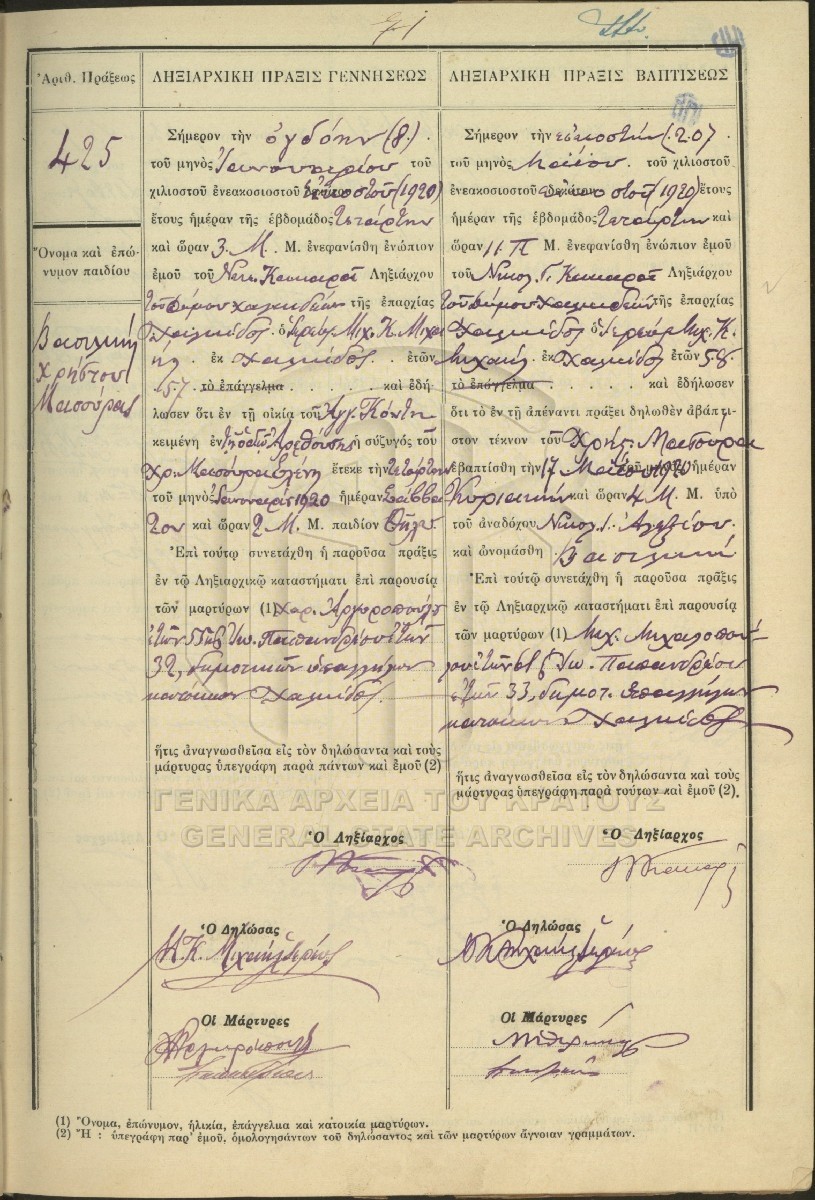 Ἀριθ. Πράξεως
425
Ὄνομα καὶ ἐπώ-
νυμον παιδίου
Βασιλική
Χρήστου
ΛΗΞΙΑΡΧΙΚΗ ΠΡΑΞΙΣ ΓΕΝΝΗΣΕΩΣ
Σήμερον τὴν ὀγδόην (8)
τοῦ μηνὸς Ἰανουαρίου τοῦ
χιλιοστοῦ ἐνεακοσιοστοῦ εἰκοστοῦ (1920)
ἔτους ἡμέραν τῆς ἑβδομάδος Τετάρτην
καὶ ὥραν 3 Μ. Μ. ἐνεφανίσθη ἐνώπιον
ἐμοῦ τοῦ Ληξιάρχου
τοῦ Δήμου Χαλκιδέων τῆς ἐπαρχίας
Χαλκίδος ὁ Ἱερεὺς Μιχ. Κ. Μιχα
ήλ ἐκ Χαλκίδος ἐτῶν
57 τὸ ἐπάγγελμα . . . . . . καὶ ἐδή-
λωσεν ὅτι ἐν τῇ οἰκίᾳ τοῦ Ἀγγ. Κόντη
κειμένῃ ἐν τῇ ὁδῷ Ἀρεθούσης ἡ σύζυγός του
Χρ. Ἑλένη ἔτεκε τὴν τετάρτην
τοῦ μηνὸς Ἰανουαρίου 1920 ἡμέραν Σάββα
τον καὶ ὥραν 2 Μ. Μ. παιδίον Θῆλυ
Ἐπὶ τούτῳ συνετάχθη ἡ παροῦσα πρᾶξις
ἐν τῷ Ληξιαρχικῷ καταστήματι ἐπὶ παρουσίᾳ
τῶν μαρτύρων (1) Χαρ. Ἀργυροπούλου
ἐτῶν Ἰω. Παπανδρέου ἐτῶν
32, δημοτικῶν ὑπαλλήλων
κατοίκων Χαλκίδος.
ἥτις ἀναγνωσθεῖσα εἰς τὸν δηλώσαντα καὶ τοὺς
μάρτυρας ὑπεγράφη παρὰ πάντων καὶ ἐμοῦ (2)
Ὁ Ληξίαρχος
Ὁ Δηλώσας
Μ. Κ. Μιχαήλ Ἱερεύς
Οἱ Μάρτυρες
ΛΗΞΙΑΡΧΙΚΗ ΠΡΑΞΙΣ ΒΑΠΤΙΣΕΩΣ
Σήμερον τὴν εἰκοστήν (20)
τοῦ μηνὸς Μαΐου τοῦ χιλιοστοῦ
ἐνεακοσιοστοῦ εἰκοστοῦ (1920) ἔτους
ἡμέραν τῆς ἑβδομάδος Τετάρτην καὶ
ὥραν 11 Π Μ. ἐνεφανίσθη ἐνώπιον ἐμοῦ
τοῦ Νικολ. Γ. Ληξιάρχου
τοῦ Δήμου Χαλκιδέων τῆς ἐπαρχίας
Χαλκίδος ὁ Ἱερεὺς Μιχ. Κ.
Μιχαήλ ἐκ Χαλκίδος ἐτῶν 58
τὸ ἐπάγγελμα . . . . . . καὶ ἐδήλωσεν
ὅτι τὸ ἐν τῇ ἀπέναντι πράξει δηλωθὲν ἀβάπτι-
στον τέκνον τοῦ Χρήσ.
ἐβαπτίσθη τὴν 17 Μαΐου 1920 ἡμέραν
Κυριακὴν καὶ ὥραν 4 Μ. Μ. ὑπὸ
τοῦ ἀναδόχου Νικολ. Ι. Ἀλεξίου
καὶ ὠνομάσθη Βασιλική
Ἐπὶ τούτῳ συνετάχθη ἡ παροῦσα πρᾶξις
ἐν τῷ Ληξιαρχικῷ καταστήματι ἐπὶ παρουσίᾳ
τῶν μαρτύρων (1) Μιχ. Μιχαλοπού-
λου ἐτῶν Ἰω. Παπανδρέου
ἐτῶν 33, δημοτ. ὑπαλλήλων
κατοίκων Χαλκίδος
ἥτις ἀναγνωσθεῖσα εἰς τὸν δηλώσαντα καὶ τοὺς
μάρτυρας ὑπεγράφη παρὰ τούτων καὶ ἐμοῦ (2).
Ὁ Ληξίαρχος
Ὁ Δηλώσας
Οἱ Μάρτυρες
ΓΕΝΙΚΑ ΑΡΧΕΙΑ ΤΟΥ ΚΡΑΤΟΥΣ
GENERAL STATE ARCHIVES
(1) Ὄνομα, ἐπώνυμον, ἡλικία, ἐπάγγελμα καὶ κατοικία μαρτύρων.
(2) Ἤ : ὑπεγράφη παρ' ἐμοῦ, ὁμολογησάντων τοῦ δηλώσαντος καὶ τῶν μαρτύρων ἄγνοιαν γραμμάτων.